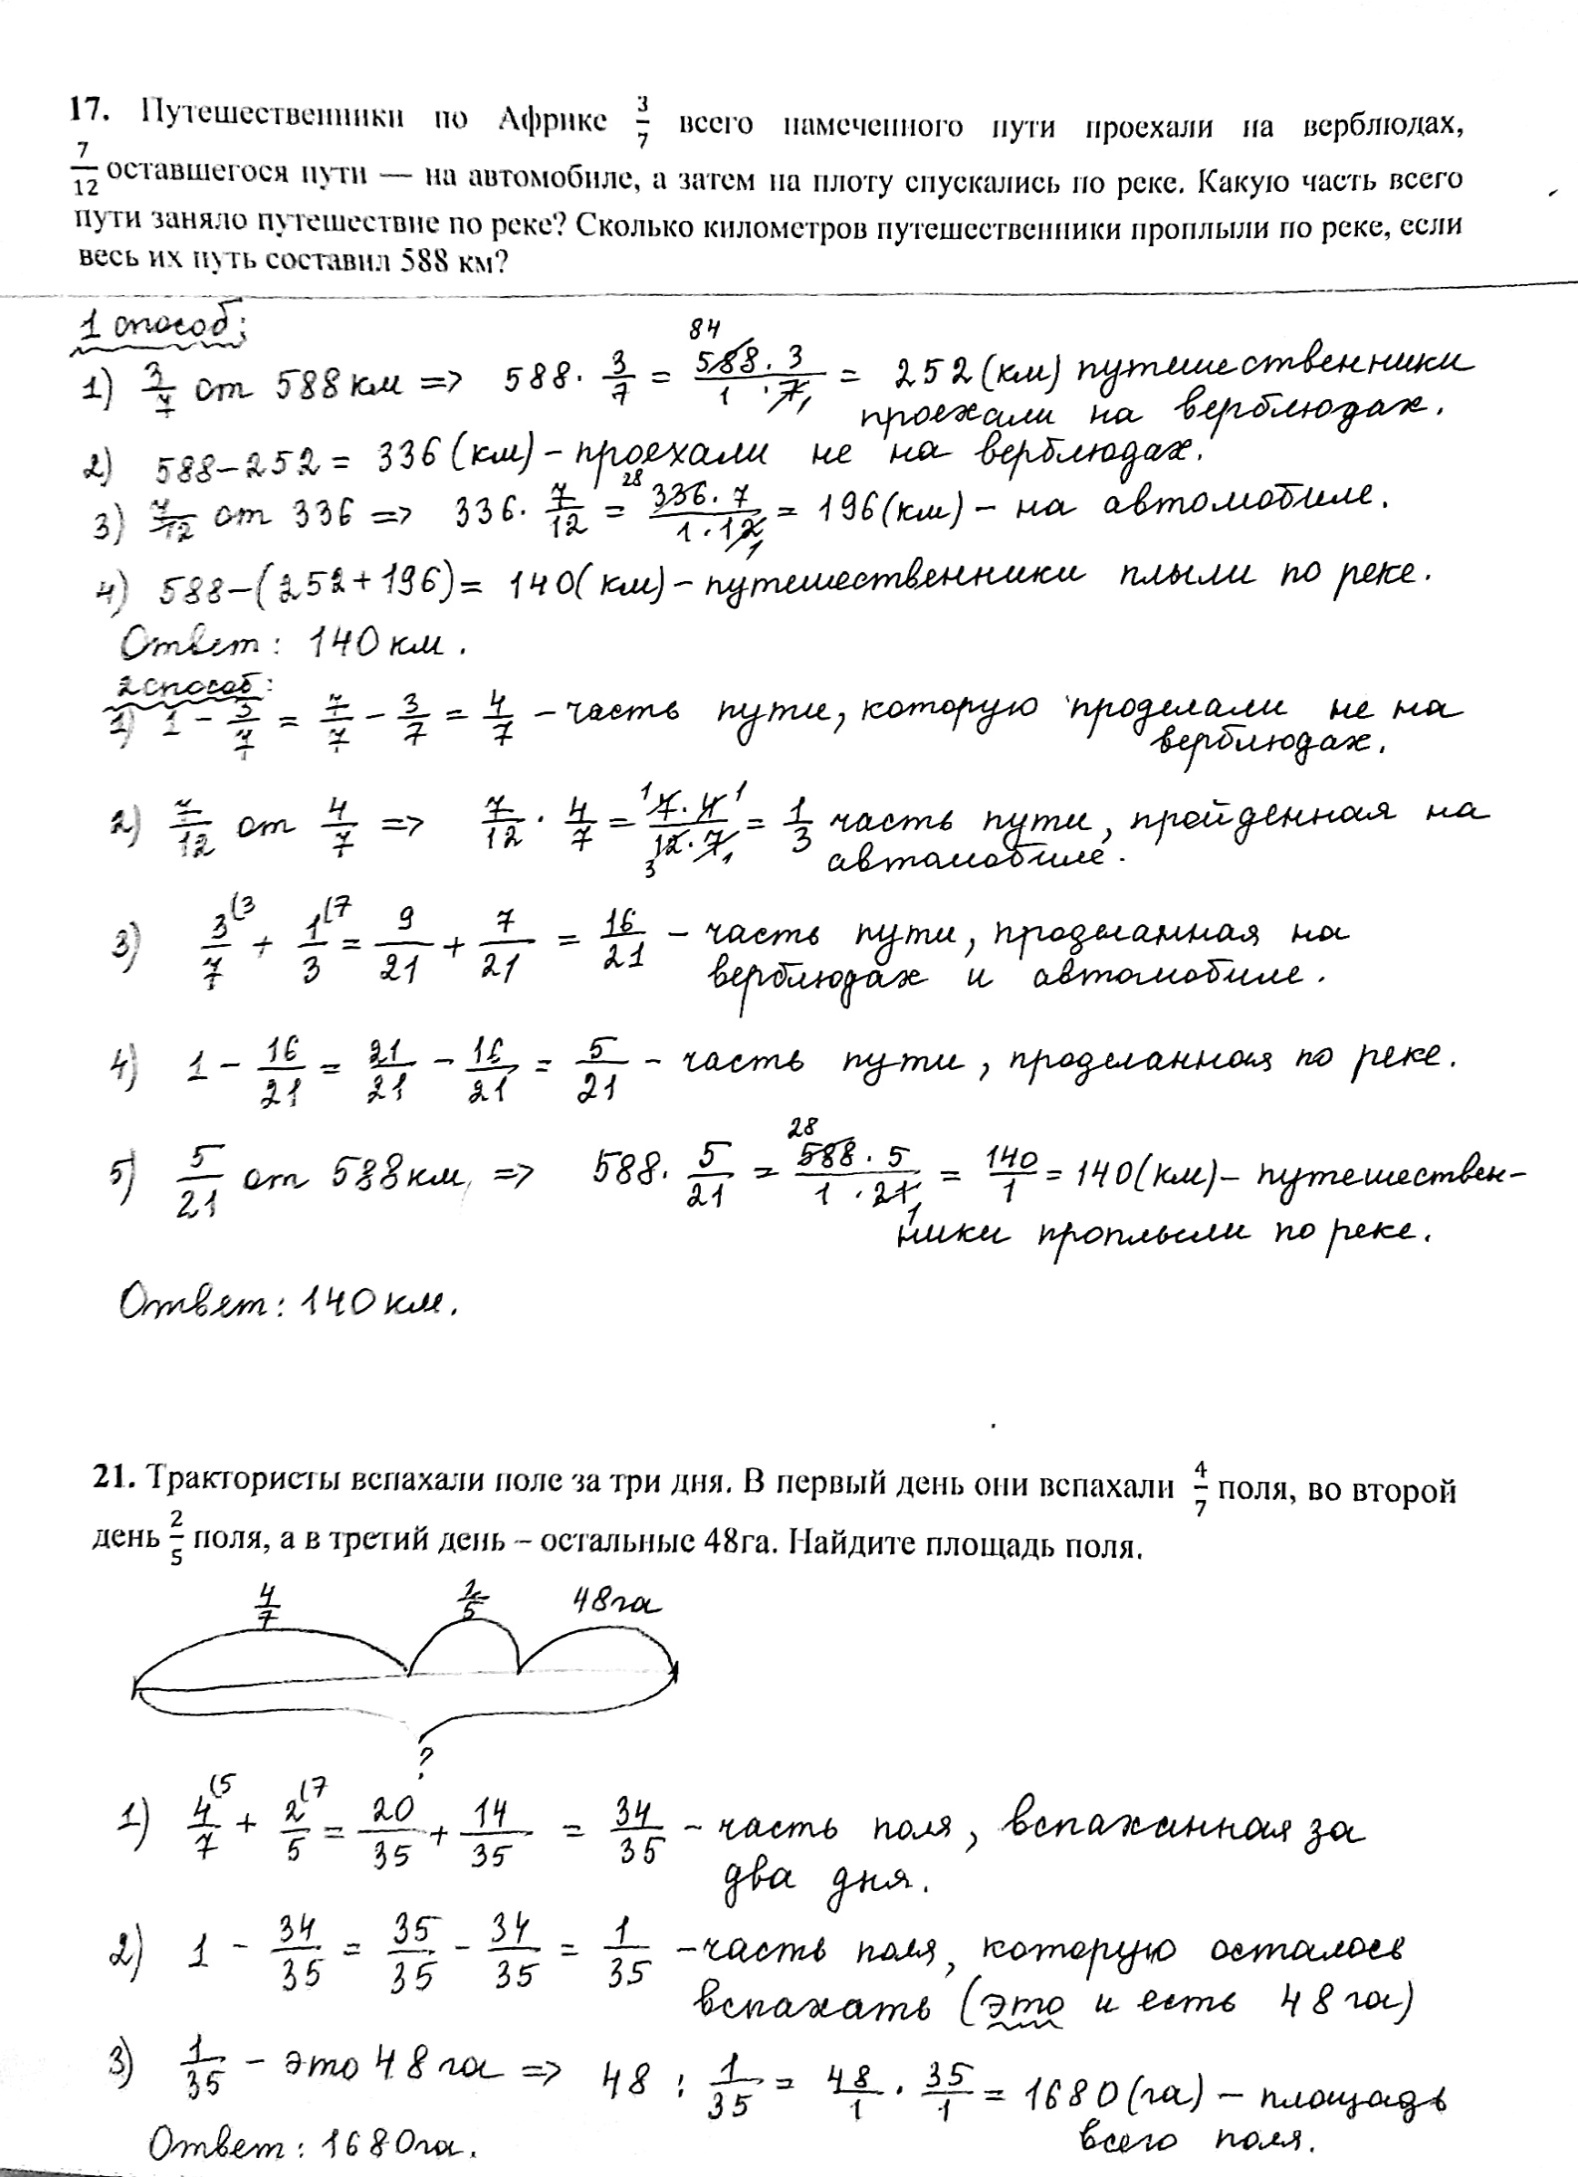 17. Путешественники по Африке 3/7 всего намеченного пути проехали на верблюдах,
7/12 оставшегося пути — на автомобиле, а затем на плоту спускались по реке. Какую часть всего
пути заняло путешествие по реке? Сколько километров путешественники проплыли по реке, если
весь их путь составил 588 км?
1 способ:
1) 3/7 от 588 км => 588 · 3/7 = (588 · 3)/(1 · 7) = 252 (км) путешественники
84 1
проехали на верблюдах.
2) 588 – 252 = 336 (км) – проехали не на верблюдах.
3) 7/12 от 336 => 336 · 7/12 = (336 · 7)/(1 · 12) = 196 (км) – на автомобиле.
28 1
4) 588 – (252 + 196) = 140 (км) – путешественники плыли по реке.
Ответ: 140 км.
2 способ:
1) 1 – 3/7 = 7/7 – 3/7 = 4/7 – часть пути, которую проделали не на
верблюдах.
2) 7/12 от 4/7 => 7/12 · 4/7 = (7 · 4)/(12 · 7) = 1/3 часть пути, пройденная на
1 1 3 1
автомобиле.
3) 3/7 (3 + 1/3 (7 = 9/21 + 7/21 = 16/21 – часть пути, проделанная на
верблюдах и автомобиле.
4) 1 – 16/21 = 21/21 – 16/21 = 5/21 – часть пути, проделанная по реке.
5) 5/21 от 588 км => 588 · 5/21 = (588 · 5)/(1 · 21) = 140/1 = 140 (км) – путешествен-
28 1
ники проплыли по реке.
Ответ: 140 км.
21. Трактористы вспахали поле за три дня. В первый день они вспахали 4/7 поля, во второй
день 2/5 поля, а в третий день – остальные 48га. Найдите площадь поля.
4/7 2/5 48 га
?
1) 4/7 (5 + 2/5 (7 = 20/35 + 14/35 = 34/35 – часть поля, вспаханная за
два дня.
2) 1 – 34/35 = 35/35 – 34/35 = 1/35 – часть поля, которую осталось
вспахать (это и есть 48 га)
3) 1/35 – это 48 га => 48 : 1/35 = 48/1 · 35/1 = 1680 (га) – площадь
всего поля.
Ответ: 1680га.